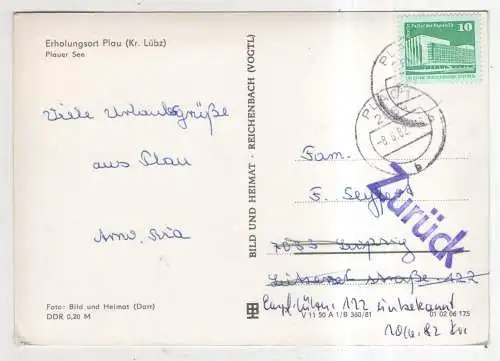 Erholungsort Plau (Kr. Lübz)
Plauer See
Viele Urlaubsgrüße
aus Plau
Arno, Ria
Foto: Bild und Heimat (Darr)
DDR 0,20 M
BILD UND HEIMAT · REICHENBACH (VOGTL)
V 11 50 A 1/B 360/81
01 02 06 175
10
PLAU
-8.6.82
b
Fam.
F.
Leipzig
straße 122
122 unbekannt
10/6.82
Zurück